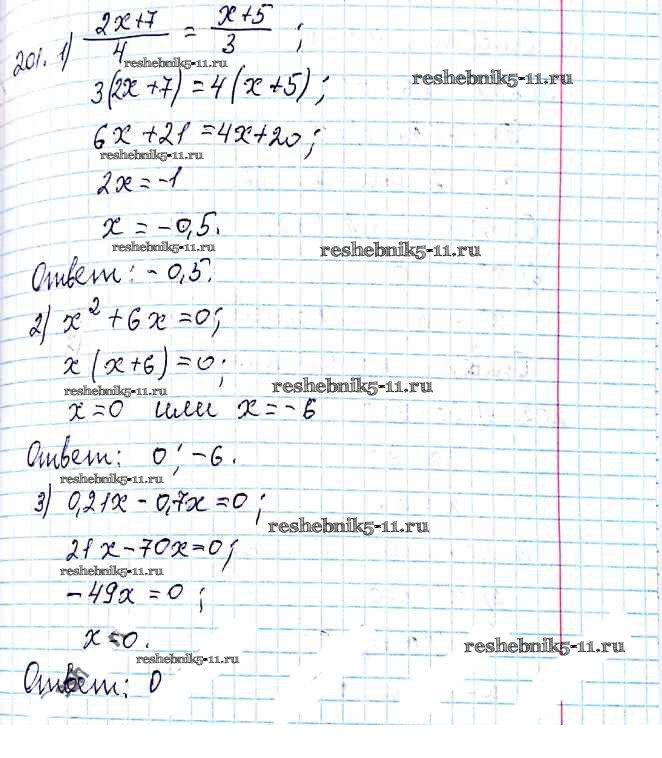 201. 1) (2x+7)/4 = (x+5)/3 ;
reshebnik5-11.ru
reshebnik5-11.ru
3(2x+7)=4(x+5);
6x+21=4x+20;
reshebnik5-11.ru
2x=-1
x=-0,5.
reshebnik5-11.ru
reshebnik5-11.ru
Ответ: -0,5.
2) x²+6x=0;
x(x+6)=0;
reshebnik5-11.ru
reshebnik5-11.ru
x=0 или x=-6
Ответ: 0; -6.
reshebnik5-11.ru
3) 0,21x-0,7x=0;
reshebnik5-11.ru
21x-70x=0;
reshebnik5-11.ru
-49x=0;
x=0.
reshebnik5-11.ru
reshebnik5-11.ru
Ответ: 0